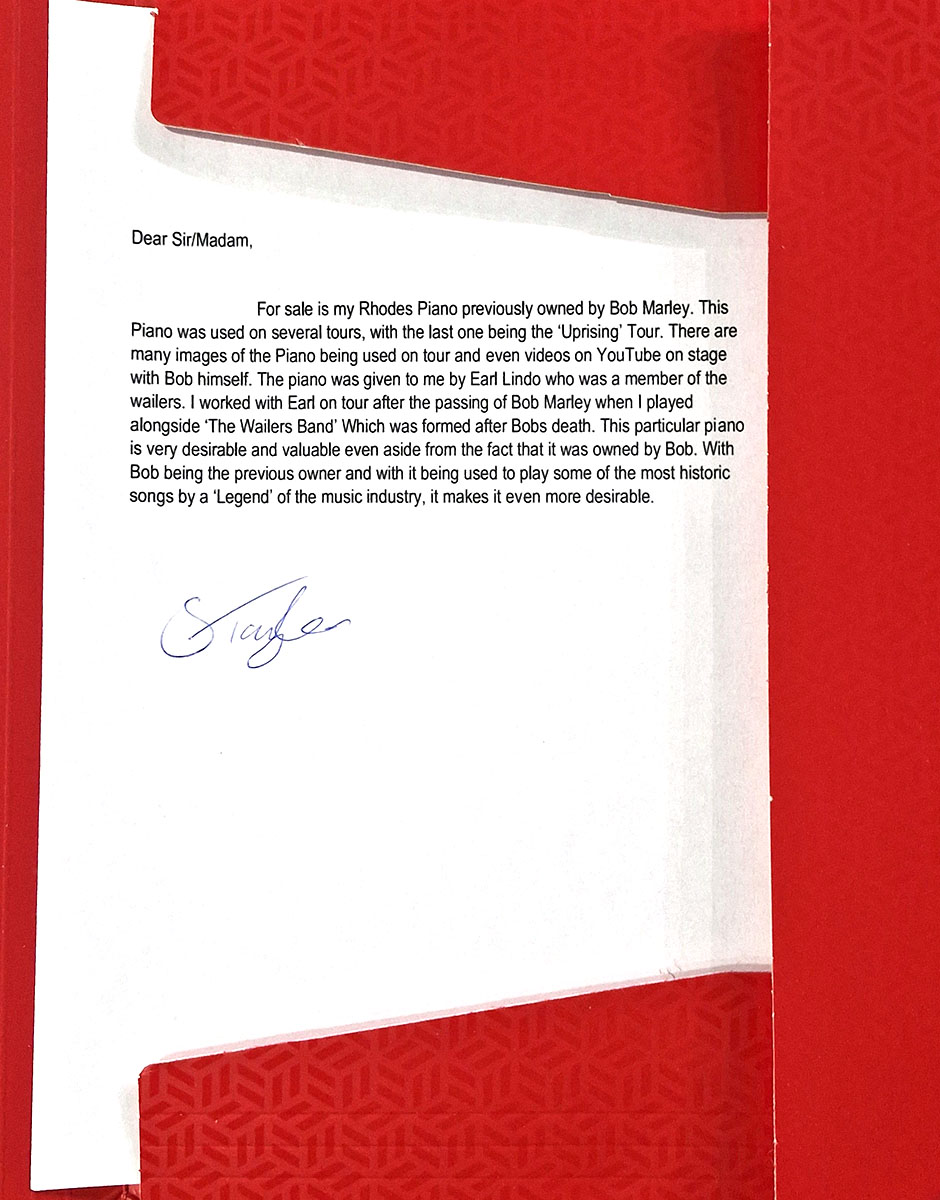 Dear Sir/Madam,
For sale is my Rhodes Piano previously owned by Bob Marley. This
Piano was used on several tours, with the last one being the ‘Uprising’ Tour. There are
many images of the Piano being used on tour and even videos on YouTube on stage
with Bob himself. The piano was given to me by Earl Lindo who was a member of the
wailers. I worked with Earl on tour after the passing of Bob Marley when I played
alongside ‘The Wailers Band’ Which was formed after Bobs death. This particular piano
is very desirable and valuable even aside from the fact that it was owned by Bob. With
Bob being the previous owner and with it being used to play some of the most historic
songs by a ‘Legend’ of the music industry, it makes it even more desirable.